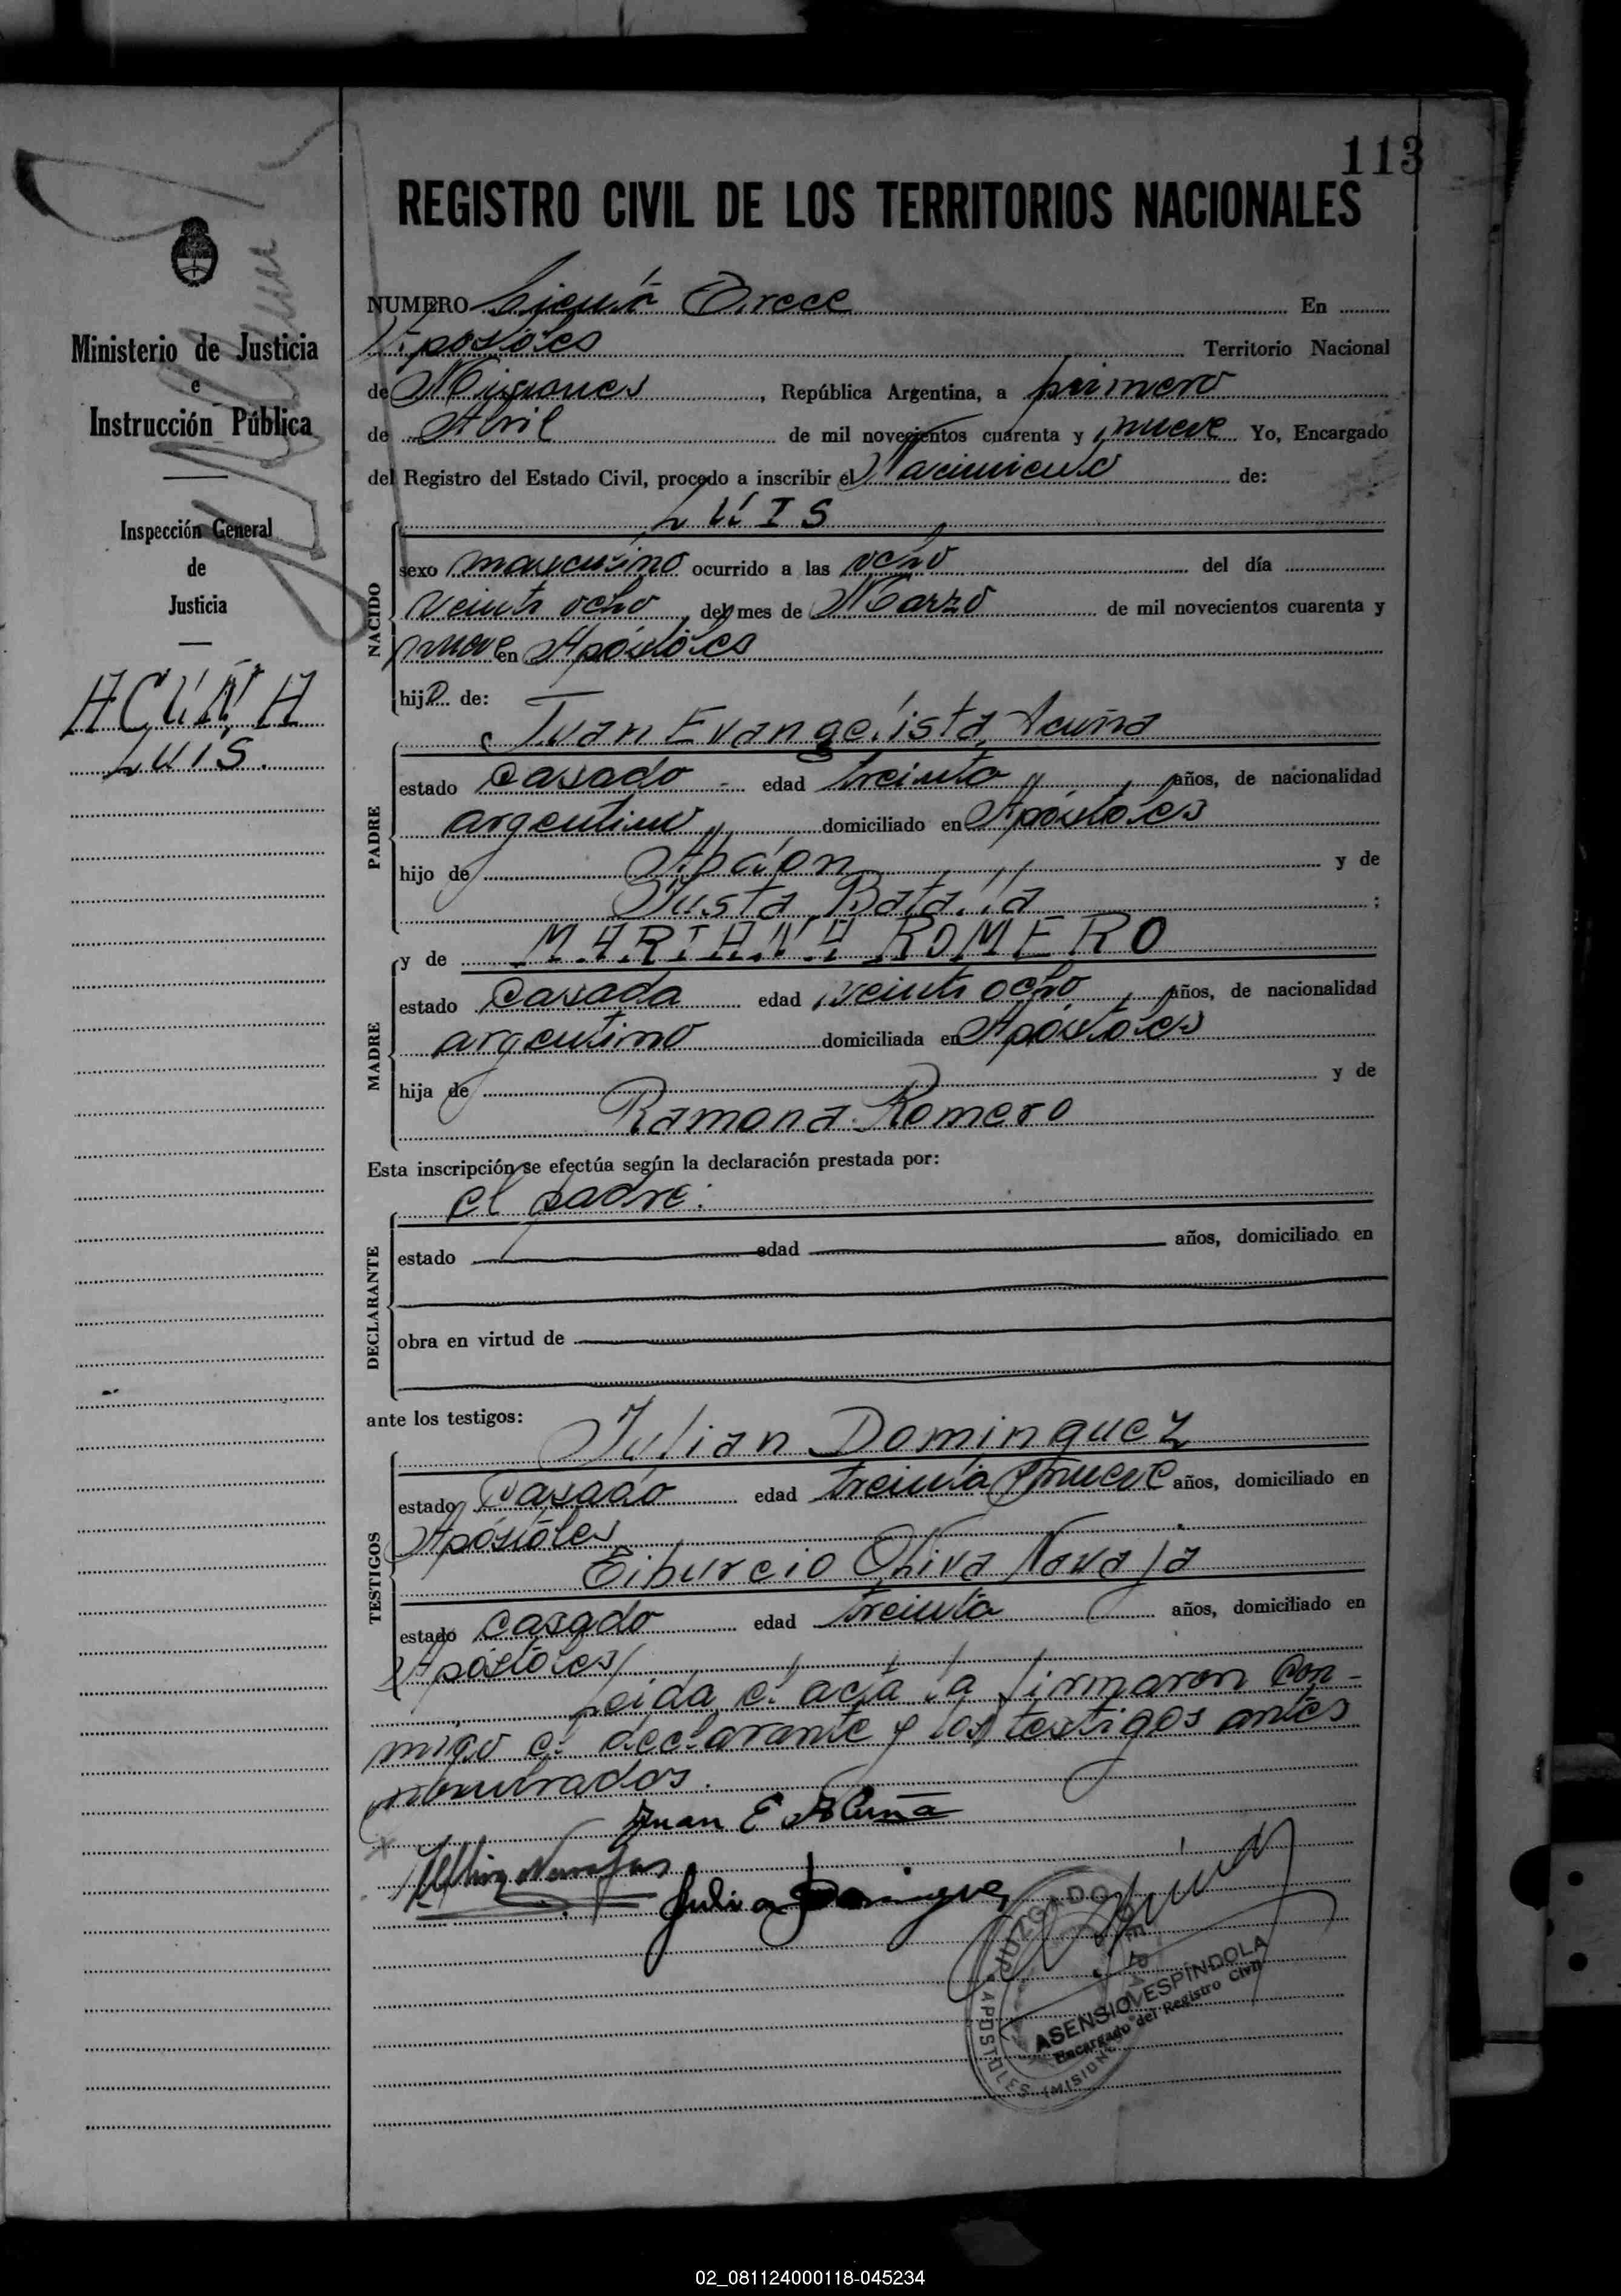 113
REGISTRO CIVIL DE LOS TERRITORIOS NACIONALES
Ministerio de Justicia
e
Instrucción Pública
Inspección General
de
Justicia
ACUÑA
LUIS.
NUMERO Ciento Trece En
Apostoles Territorio Nacional
de Misiones, República Argentina, a primero
de Abril de mil novecientos cuarenta y nueve Yo, Encargado
del Registro del Estado Civil, procedo a inscribir el Nacimiento de:
LUIS
NACIDO
sexo masculino ocurrido a las ocho del día
veinte ocho, del mes de Marzo de mil novecientos cuarenta y
nueve en Apóstoles
hijo de:
Juan Evangelista Acuña
PADRE
estado Casado - edad treinta años, de nacionalidad
argentino domiciliado en Apóstoles
hijo de y de
Justa Batalla ;
MADRE
y de MARIANA ROMERO
estado Casada edad veinte ocho años, de nacionalidad
argentino domiciliada en Apóstoles
hija de y de
Ramona Romero
Esta inscripción se efectúa según la declaración prestada por:
el padre:
DECLARANTE
estado edad años, domiciliado en
obra en virtud de
ante los testigos:
Julian Dominguez
TESTIGOS
estado Casado edad treinta y nueve años, domiciliado en
Apóstoles
Tiburcio Navaja
estado Casado edad treinta años, domiciliado en
Apóstoles
Leida el acta la firmaron con-
migo el declarante y los testigos antes
nombrados.
Juan E Acuña
Julian Dominguez
JUZGADO DE PAZ
APOSTOLES (MISIONES)
ASENSIO V ESPÍNDOLA
Encargado del Registro Civil
02_081124000118-045234